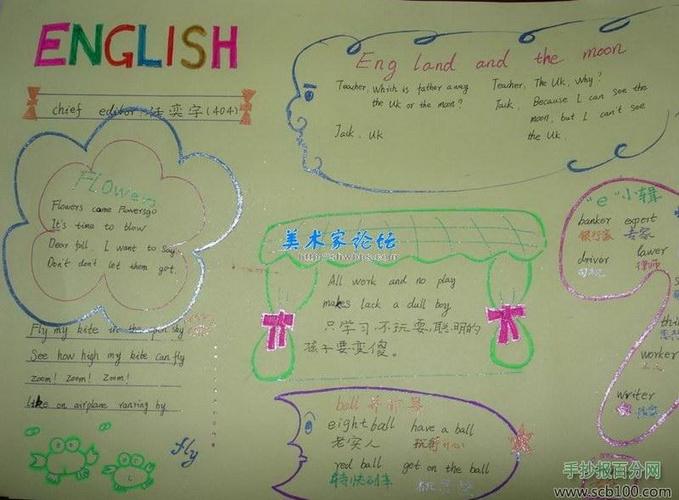 ENGLISH
chief editor (404)
Flower
Flowers came Flowersgo
It's time to blow
Dear fall, I want to say
Don't don't let them got.
Eng land and the moon
Teacher, Which is father away
the UK or the moon?
Jack, UK
Teacher, The UK, Why?
Jack, Because I can see the
moon, but I can't see
the UK.
美术家论坛
All work and no play
makes lack a dull boy
只学习,不玩耍,聪明的
孩子要变傻。
"e"小辑
banker expert
银行家 专家
driver lawer
司机 律师
worker
writer
Fly my kite in the open sky
See how high my kite can fly
Zoom! Zoom! Zoom!
Like an airplane running by
fly
ball
eight ball have a ball
老实人
red ball get on the ball
特快列车
手抄报百分网
www.scb100.com